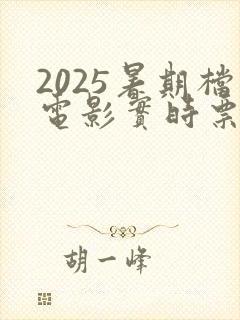 2025暑期檔
電影實時票
胡一峰